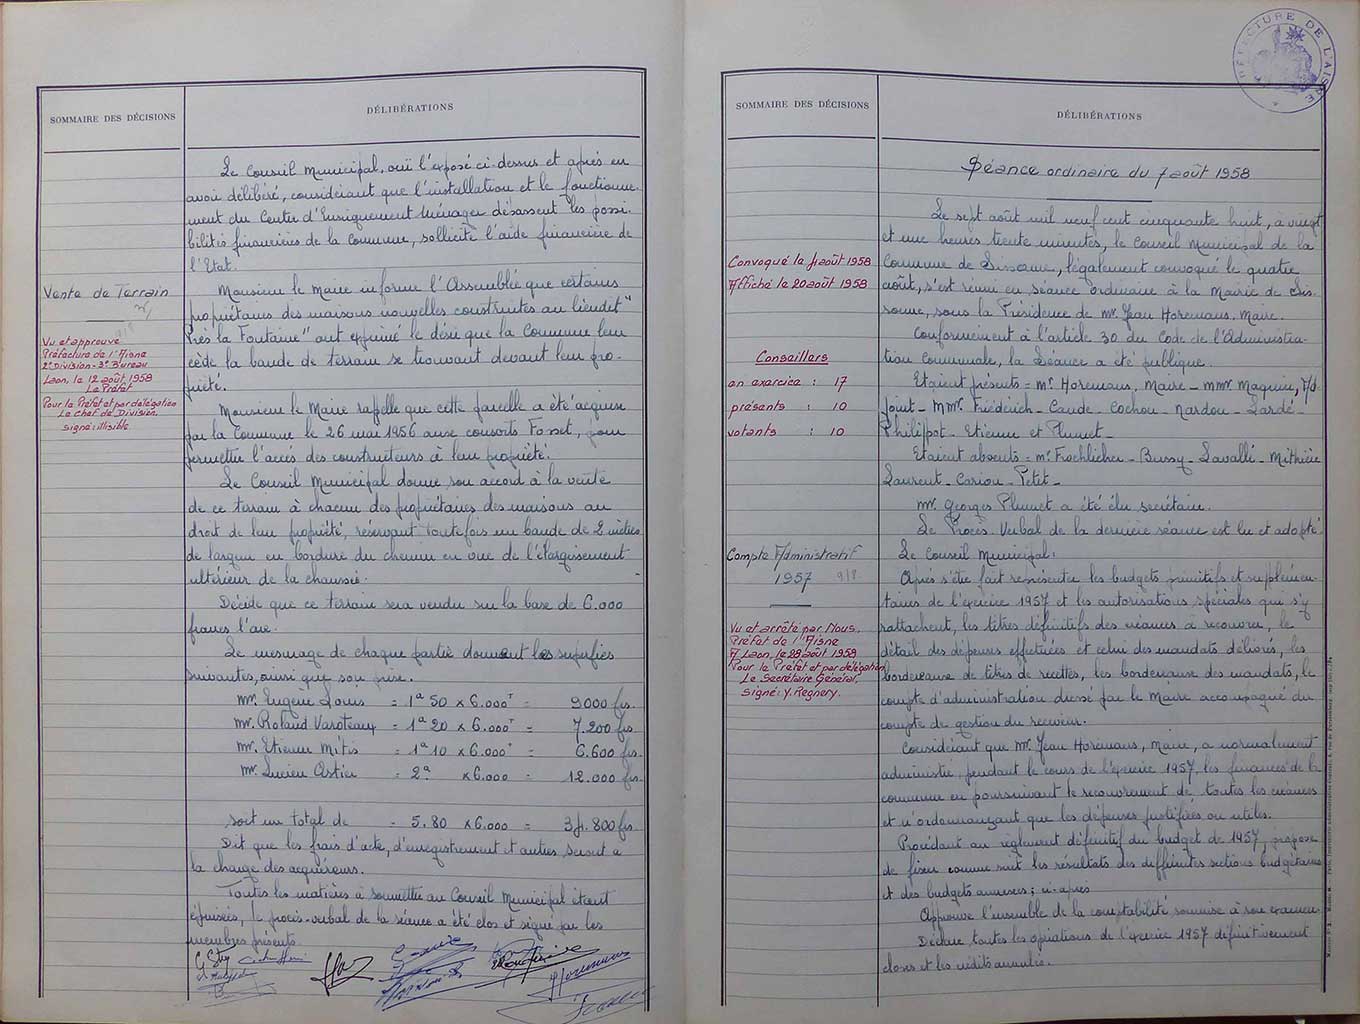 SOMMAIRE DES DÉCISIONS
DÉLIBÉRATIONS
Le Conseil Municipal, ouï l'exposé ci-dessus et après en
avoir délibéré, considérant que l'installation et le fonctionne-
ment du Center d'Enseignement Ménager dépassent les possi-
bilités financières de la Commune, sollicite l'aide financière de
l'Etat.
Vente de Terrain
Vu et approuvé
Préfecture de l'Aisne
2e Division - 3e Bureau
Laon, le 12 août 1958
Le Préfet
Pour le Préfet et par délégation
Le Chef de Division,
signé: illisible
Monsieur le Maire informe l'Assemblée que certains
propriétaires des maisons nouvelles construites au lieudit "
Près la Fontaine" ont exprimé le désir que la Commune leur
cède la bande de terrain se trouvant devant leur pro-
priété.
Monsieur le Maire rappelle que cette parcelle a été acquise
par la Commune le 26 mai 1956 aux consorts Fosset, pour
permettre l'accès des constructeurs à leur propriété.
Le Conseil Municipal donne son accord à la vente
de ce terrain à chacun des propriétaires des maisons au
droit de leur propriété, réservant toutefois une bande de 2 mètres
de largeur en bordure du chemin en vue de l'élargissement
ultérieur de la chaussée.
Décide que ce terrain sera vendu sur la base de 6.000
francs l'are.
Le mesurage de chaque partie donnent les superficies
suivantes, ainsi que son prix.
Mr. Eugène Louis = 1a 50 x 6.000 = 9000 frs.
Mr. Roland Varoteaux = 1a 20 x 6.000 = 7.200 frs
Mr. Etienne Mitis = 1a 10 x 6.000 = 6.600 frs
Mr. Lucien Astier = 2a x 6.000 = 12.000 frs.
soit un total de = 5.80 x 6.000 = 34.800 frs
Dit que les frais d'acte, d'enregistrement et autres seront à
la charge des acquéreurs.
Toutes les matières à soumettre au Conseil Municipal étant
épuisées, le procès-verbal de la séance a été clos et signé par les
membres présents
PRÉFECTURE DE L'AISNE
SOMMAIRE DES DÉCISIONS
DÉLIBÉRATIONS
Séance ordinaire du 7 août 1958
Convoqué le 4 août 1958
Affiché le 20 août 1958
Conseillers
en exercice : 17
présents : 10
votants : 10
Le sept août mil neuf cent cinquante huit, à vingt
et une heures trente minutes, le Conseil Municipal de la
Commune de Sissonne, légalement convoqué le quatre
août, s'est réuni en séance ordinaire à la Mairie de Sis-
sonne, sous la Présidence de Mr. Jean Horemans, Maire.
Conformément à l'article 30 du Code de l'Administra-
tion Communale, la Séance a été publique.
Etaient présents = Mr. Horemans, Maire - Magnien, Ad-
joint - MMr. Friédrich - Caude - Cochou - Nardou - Lardé -
Philippot - Etienne et Plumet -
Etaient absents = Mr Frochlicher - Bussy - Lavallé - Mithière
Laurent - Cariou - Petit -
Mr. Georges Plumet a été élu secrétaire.
Le Procès Verbal de la dernière séance est lu et adopté.
Compte Administratif
1957 9/8
Vu et arrêté par Nous,
Préfet de l'Aisne
A Laon, le 28 août 1958
Pour le Préfet et par délégation
Le Secrétaire Général,
signé: Y. Regnery.
Le Conseil Municipal:
Après s'être fait représenter les budgets primitifs et supplémen-
taires de l'exercice 1957 et les autorisations spéciales qui s'y
rattachent, les titres définitifs des créances à recouvrer, le
détail des dépenses effectuées et celui des mandats délivrés, les
bordereaux de titres de recettes, les bordereaux des mandats, le
compte d'administration dressé par le Maire accompagné du
compte de gestion du receveur.
Considérant que Mr. Jean Horemans, Maire, a normalement
administré, pendant le cours de l'exercice 1957, les finances de la
commune en poursuivant le recouvrement de toutes les créances
et n'ordonnançant que les dépenses justifiées ou utiles.
Procédant au règlement définitif du budget de 1957, propose
de fixer comme suit les résultats des différentes sections budgétaires
et des budgets annexes; ci-après
Approuve l'ensemble de la comptabilité soumise à son examen.
Déclare toutes les opérations de l'exercice 1957 définitivement
closes et les crédits annulés.